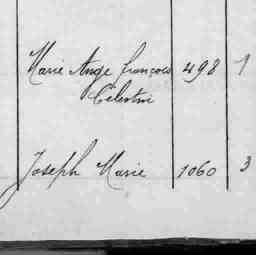 Marie Ange françois 498 9
Célestin
Joseph Marie 1060 3